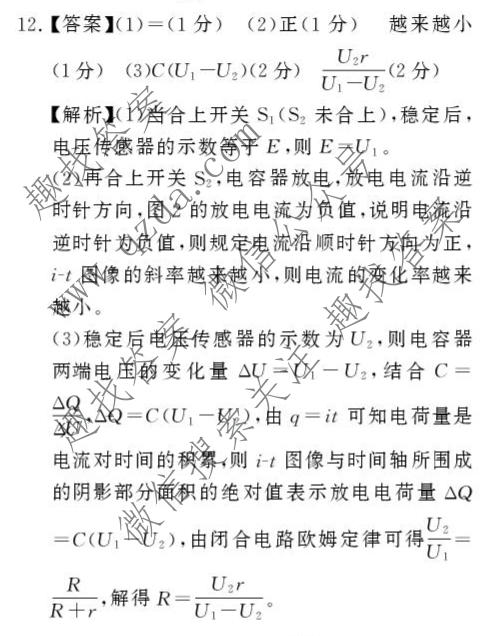 12.【答案】(1)=(1分) (2)正(1分) 越来越小
(1分) (3)C(U₁-U₂)(2分) U₂r/(U₁-U₂)(2分)
【解析】(1)当合上开关 S₁(S₂ 未合上),稳定后,
电压传感器的示数等于 E,则 E=U₁。
(2)再合上开关 S₂,电容器放电,放电电流沿逆
时针方向,图2的放电电流为负值,说明电流沿
逆时针为负值,则规定电流沿顺时针方向为正,
i-t 图像的斜率越来越小,则电流的变化率越来
越小。
(3)稳定后电压传感器的示数为 U₂,则电容器
两端电压的变化量 ΔU=U₁-U₂,结合 C=
ΔQ/ΔU,ΔQ=C(U₁-U₂),由 q=it 可知电荷量是
电流对时间的积累,则 i-t 图像与时间轴所围成
的阴影部分面积的绝对值表示放电电荷量 ΔQ
=C(U₁-U₂),由闭合电路欧姆定律可得 U₂/U₁=
R/(R+r),解得 R=U₂r/(U₁-U₂)。
趣找答案
www.qzda.com
微信公众号
趣找答案
趣找答案
微信搜索关注